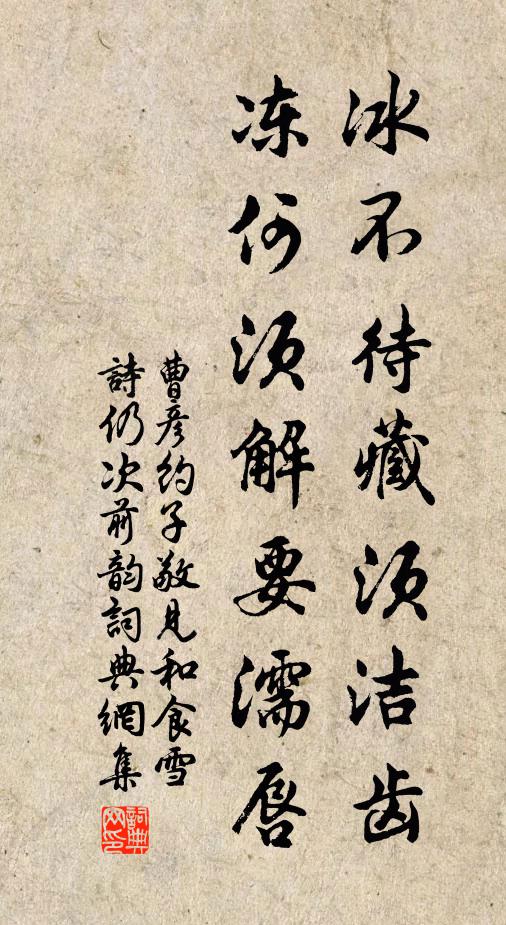 冰不待藏须洁齿
冻何须解要濡唇
曹彦约子敬见和食雪
詩仍次前韵詞典網集
詞典网印